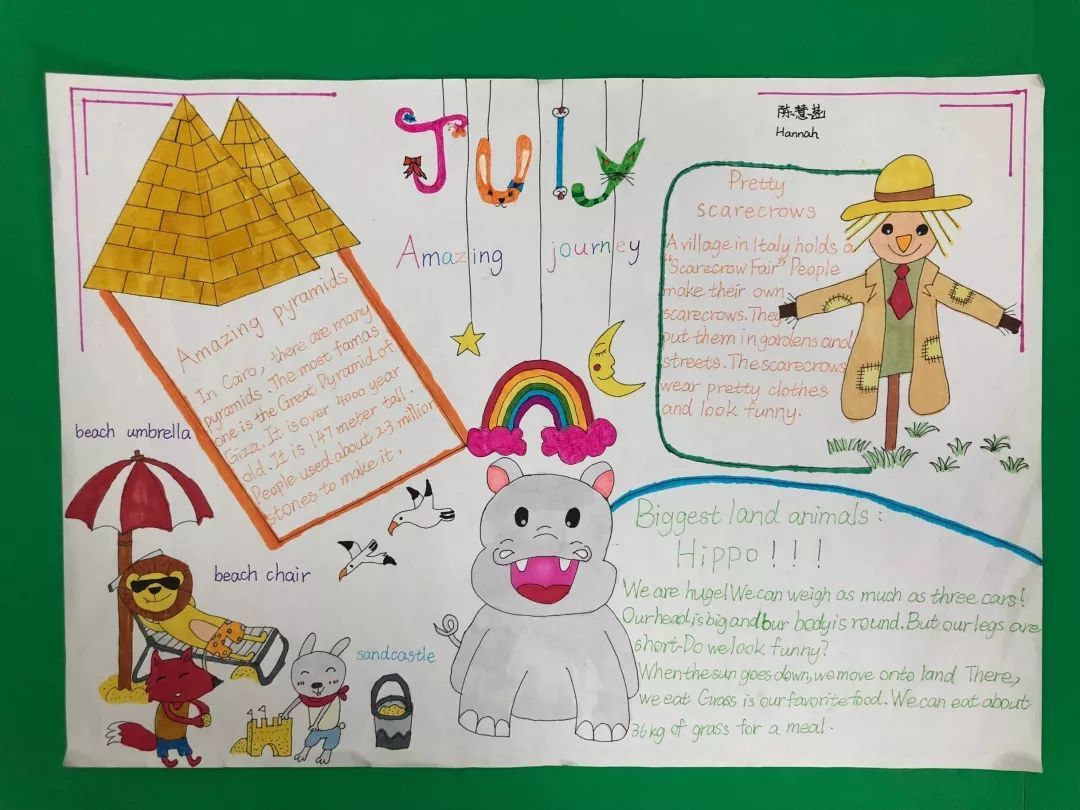 July
陈慧
Hannah
Amazing journey
Amazing pyramids
In Cairo, there are many
pyramids. The most famas
one is the Great Pyramid of
Giza. It is over 4000 year
old. It is 147 meter tall.
People used about 2.3 million
stones to make it.
Pretty
scarecrows
A village in Italy holds a
"Scarecrow Fair" People
make their own
scarecrows. They
put them in gardens and
streets. The scarecrows
wear pretty clothes
and look funny.
beach umbrella
beach chair
sandcastle
Biggest land animals:
Hippo!!!
We are huge! We can weigh as much as three cars!
Our head is big and our body is round. But our legs are
short. Do we look funny?
When the sun goes down, we move onto land There,
we eat Grass is our favorite food. We can eat about
36kg of grass for a meal.